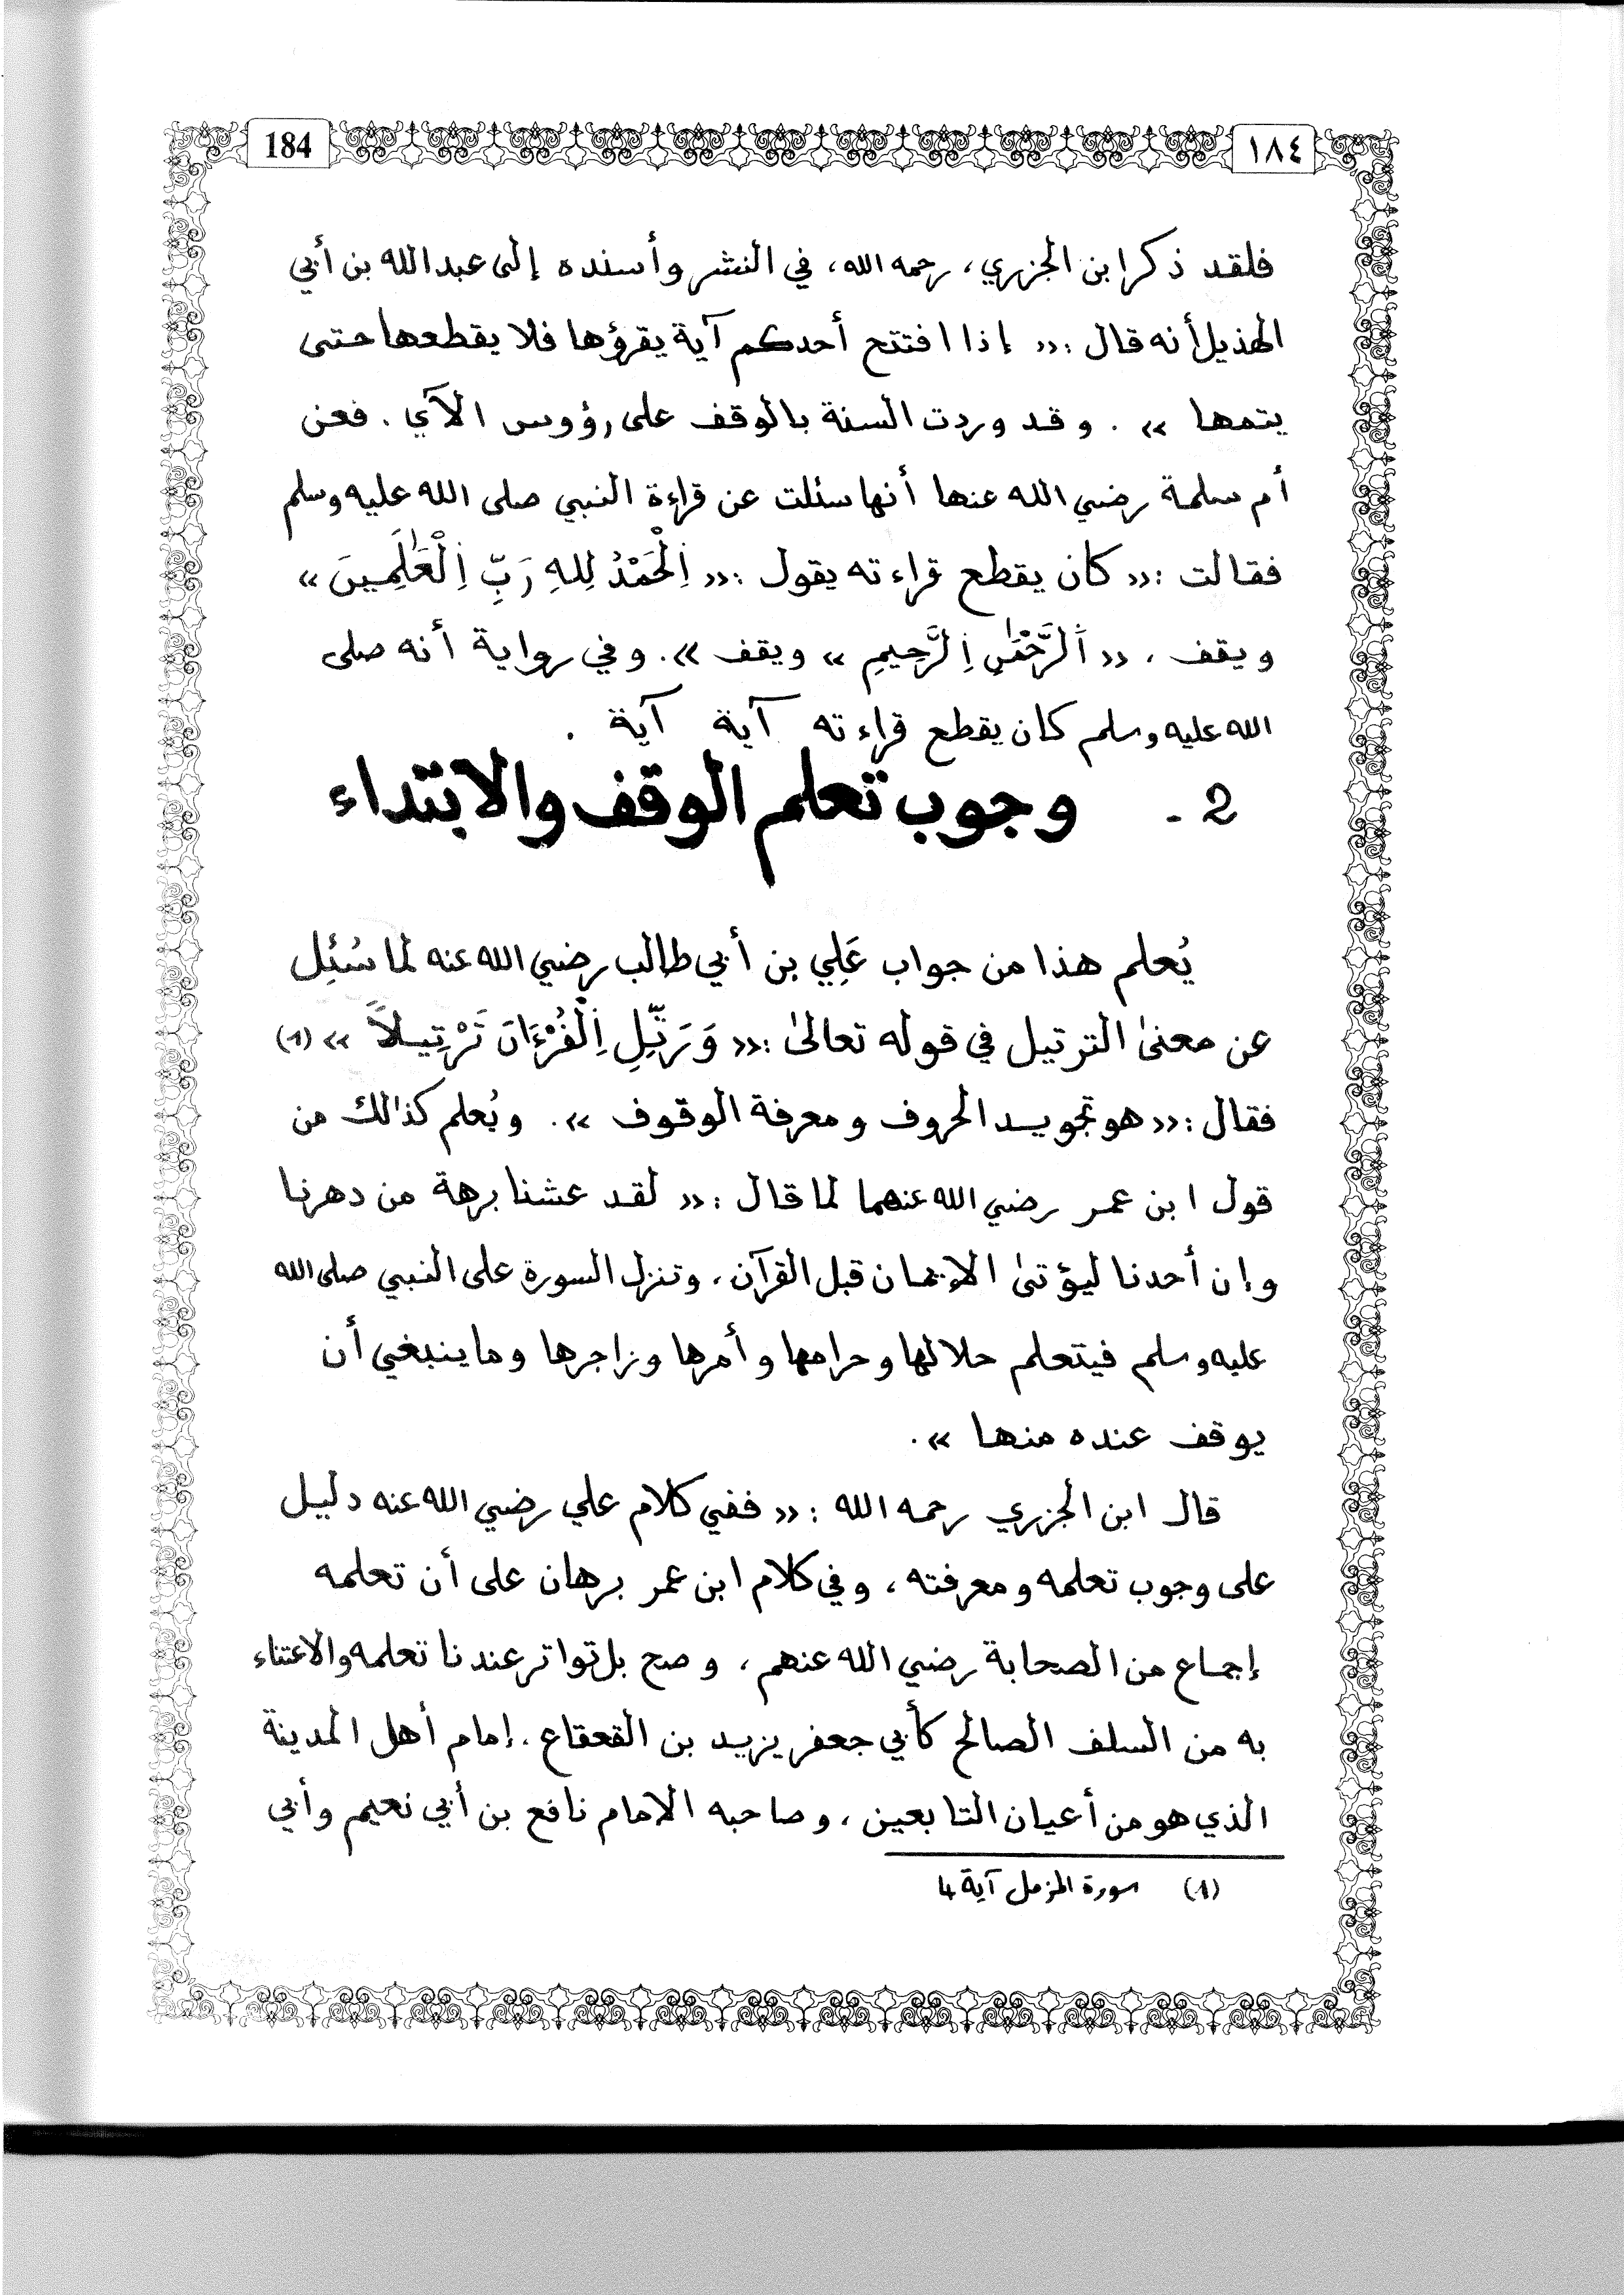 184
١٨٤
فلقد ذكر ابن الجزري، رحمه الله، في النشر وأسنده إلى عبد الله بن أبي
الهذيل أنه قال :« إذا افتتح أحدكم آية يقرؤها فلا يقطعها حتى
يتمها ». وقد وردت السنة بالوقف على رؤوس الآي. فعن
أم سلمة رضي الله عنها أنها سئلت عن قراءة النبي صلى الله عليه وسلم
فقالت :« كان يقطع قراءته يقول :« اِلْحَمْدُ لِلهِ رَبِّ اِلْعَٰلَمِينَ »
ويقف ، « اَلرَّحْمَٰنِ اِلرَّحِيمِ » ويقف ». وفي رواية أنه صلى
الله عليه وسلم كان يقطع قراءته آية آية .
2 - وجوب تعلم الوقف والابتداء
يُعلم هذا من جواب عَلِي بن أبي طالب رضي الله عنه لما سُئِل
عن معنىٰ الترتيل في قوله تعالىٰ :« وَرَتِّلِ اِلْقُرْءَانَ تَرْتِيلاً » (1)
فقال :« هو تجويد الحروف ومعرفة الوقوف ». ويُعلم كذالك من
قول ابن عمر رضي الله عنهما لما قال :« لقد عشنا برهة من دهرنا
وإن أحدنا ليؤتىٰ الإيمان قبل القرآن، وتنزل السورة على النبي صلى الله
عليه وسلم فيتعلم حلالها وحرامها وأمرها وزاجرها وما ينبغي أن
يوقف عنده منها ».
قال ابن الجزري رحمه الله :« ففي كلام علي رضي الله عنه دليل
على وجوب تعلمه ومعرفته ، وفي كلام ابن عمر برهان على أن تعلمه
إجماع من الصحابة رضي الله عنهم ، وصح بل تواتر عندنا تعلمه والاعتناء
به من السلف الصالح كأبي جعفر يزيد بن القعقاع، إمام أهل المدينة
الذي هو من أعيان التابعين ، وصاحبه الامام نافع بن أبي نعيم وأبي
(1) سورة المزمل آية 4